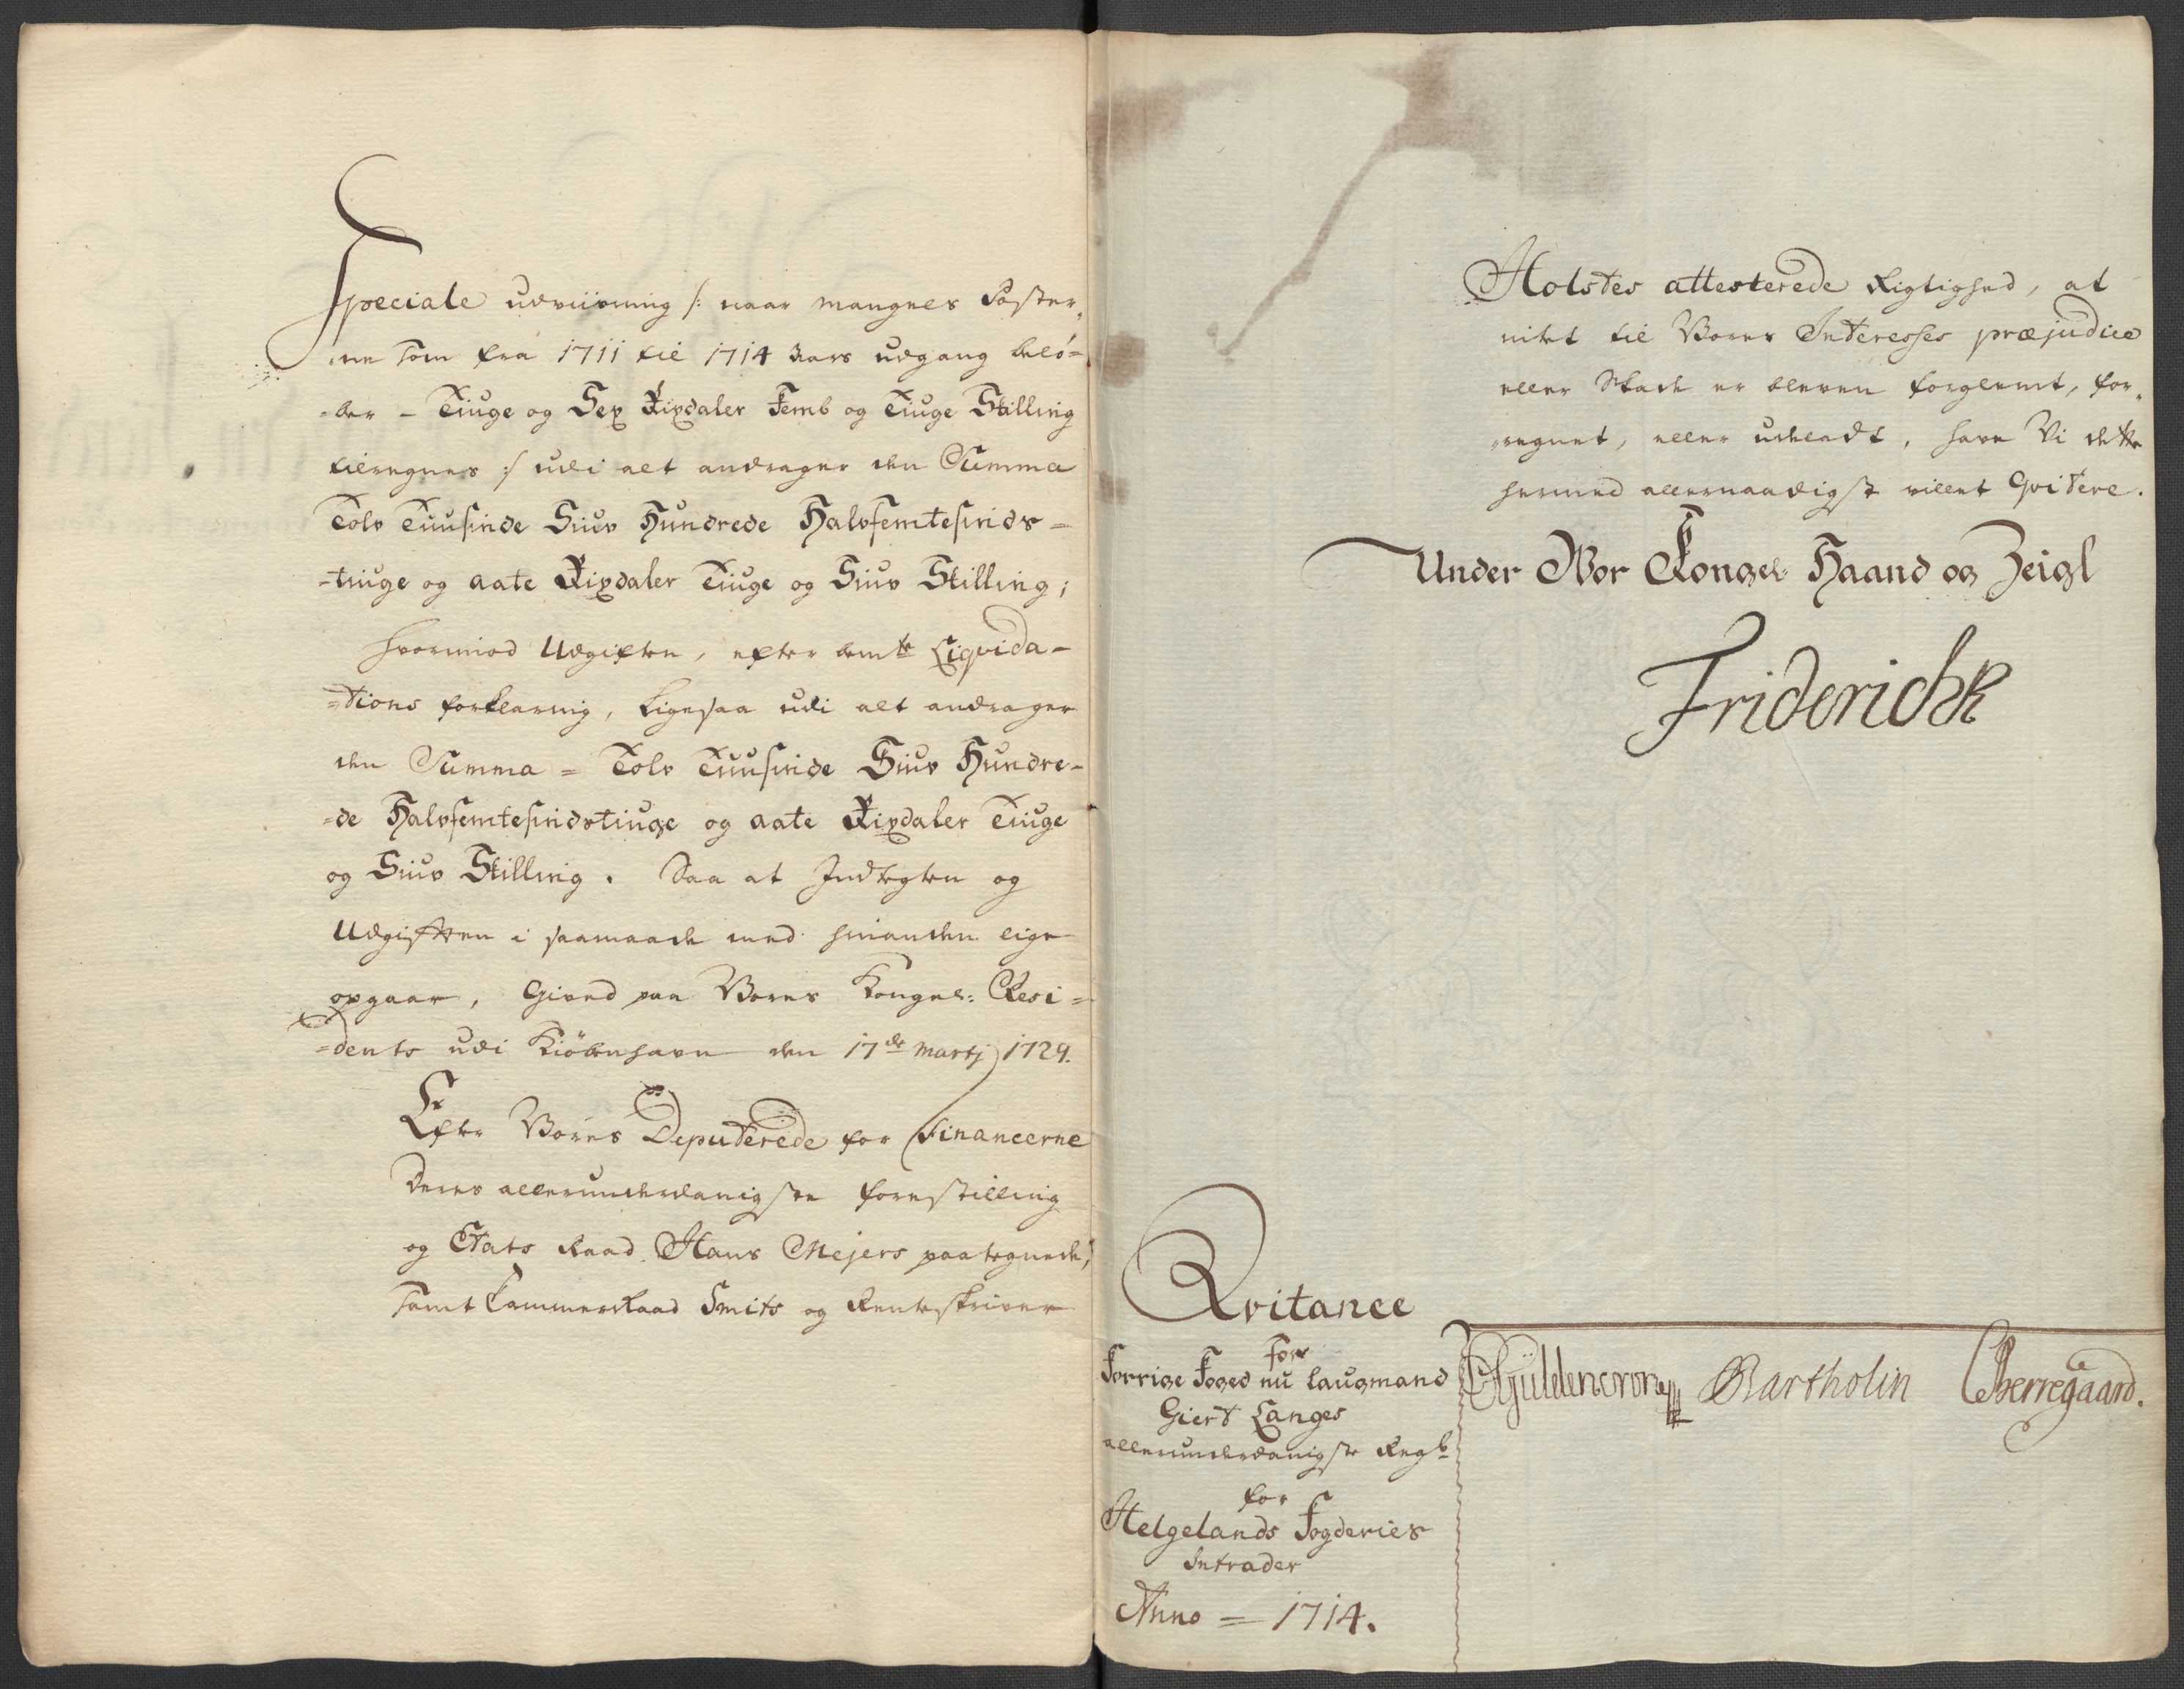 Speciale udviisning /: naar mangels Poster,
,,ne som fra 1711 til 1714 Aars udgang belø=
=ber - Tiuge og Sex Rixdaler Femb og Tiuge Skilling
tilregnes :/ udi alt andrager den Summa
Tolv Tuusinde Siuv Hundrede Halvfemtesinds=
=tiuge og aate Rixdaler Tiuge og Siuv Skilling;
Hvorimod Udgiften, efter bemte Liqvida-
=tions forklaring, ligesaa udi alt andrager
den Summa = Tolv Tuusinde Siuv Hundre-
=de Halvfemtesindstiuge og aate Rixdaler Tiuge
og Siuv Skilling. Saa at Indtegten og
Udgiften i saamaade med hinanden lige
opgaar, Gived paa Vores Kongel: Resi=
=dents udi Kiøbenhavn den 17de Martj 1729.
Efter Vores Deputerede for Financerne
Deres allerunderdanigste forestilling
og Etats Raad Hans Mejers paategnede,
samt CammerRaad Smits og Renteskriver
Holstes attesterede Rigtighed, at
intet til Vores Interesses præjudice
eller Skade er bleven forglemt, for,,
,,regnet, eller udeladt, have Vi dette
hermed allernaadigst villet Qvitere.
Under Vor Kongel: Haand og Zeigl
FriderichR
Qvitance
for
Forrige Foged nu laugmand
Giert Langes
allerunderdanigste Regb
for
Helgelands Fogderies
Intrader
Anno = 1714.
CGüldencrone Bartholin CBerregaard.